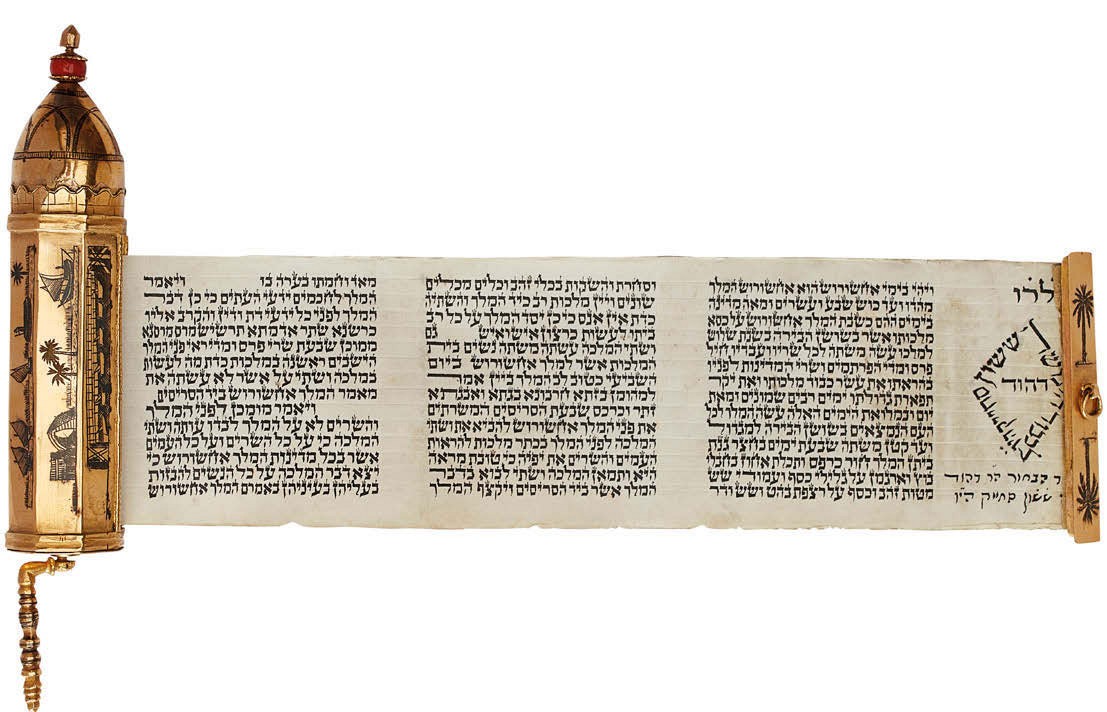 ששון
דהוד
הבחור הר דהוד
ששון סחייק היו
ויהי בימי אחשורוש הוא אחשורוש המלך
מהדו ועד כוש שבע ועשרים ומאה מדינה
בימים ההם כשבת המלך אחשורוש על כסא
מלכותו אשר בשושן הבירה בשנת שלוש
למלכו עשה משתה לכל שריו ועבדיו חיל
פרס ומדי הפרתמים ושרי המדינות לפניו
בהראתו את עשר כבוד מלכותו ואת יקר
תפארת גדולתו ימים רבים שמונים ומאת
יום ובמלואת הימים האלה עשה המלך לכל
העם הנמצאים בשושן הבירה למגדול
ועד קטן משתה שבעת ימים בחצר גנת
ביתן המלך חור כרפס ותכלת אחוז בחבלי
בוץ וארגמן על גלילי כסף ועמודי שש
מטות זהב וכסף על רצפת בהט ושש ודר
וסחרת והשקות בכלי זהב וכלים מכלים
שונים ויין מלכות רב כיד המלך והשתיה
כדת אין אנס כי כן יסד המלך על כל רב
ביתו לעשות כרצון איש ואיש גם
ושתי המלכה עשתה משתה נשים בית
המלכות אשר למלך אחשורוש ביום
השביעי כטוב לב המלך ביין אמר
למהומן בזתא חרבונא בגתא ואבגתא
זתר וכרכס שבעת הסריסים המשרתים
את פני המלך אחשורוש להביא את ושתי
המלכה לפני המלך בכתר מלכות להראות
העמים והשרים את יפיה כי טובת מראה
היא ותמאן המלכה ושתי לבוא בדבר
המלך אשר ביד הסריסים ויקצף המלך
מאד וחמתו בערה בו ויאמר
המלך לחכמים ידעי העתים כי כן דבר
המלך לפני כל ידעי דת ודין והקרב אליו
כרשנא שתר אדמתא תרשיש מרס מרסנא
ממוכן שבעת שרי פרס ומדי ראי פני המלך
הישבים ראשנה במלכות כדת מה לעשות
במלכה ושתי על אשר לא עשתה את
מאמר המלך אחשורוש ביד הסריסים
ויאמר מומכן לפני המלך
והשרים לא על המלך לבדו עותה ושתי
המלכה כי על כל השרים ועל כל העמים
אשר בכל מדינות המלך אחשורוש כי
יצא דבר המלכה על כל הנשים להבזות
בעליהן בעיניהן באמרם המלך אחשורוש